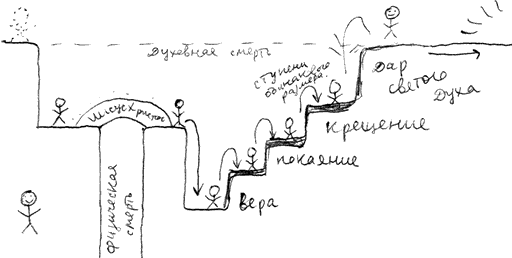 Духовная смерть
ступени
одинакового
размера.
Дар
святого
Духа
Иисус Христос
крещение
покаяние
вера
физическая
смерть